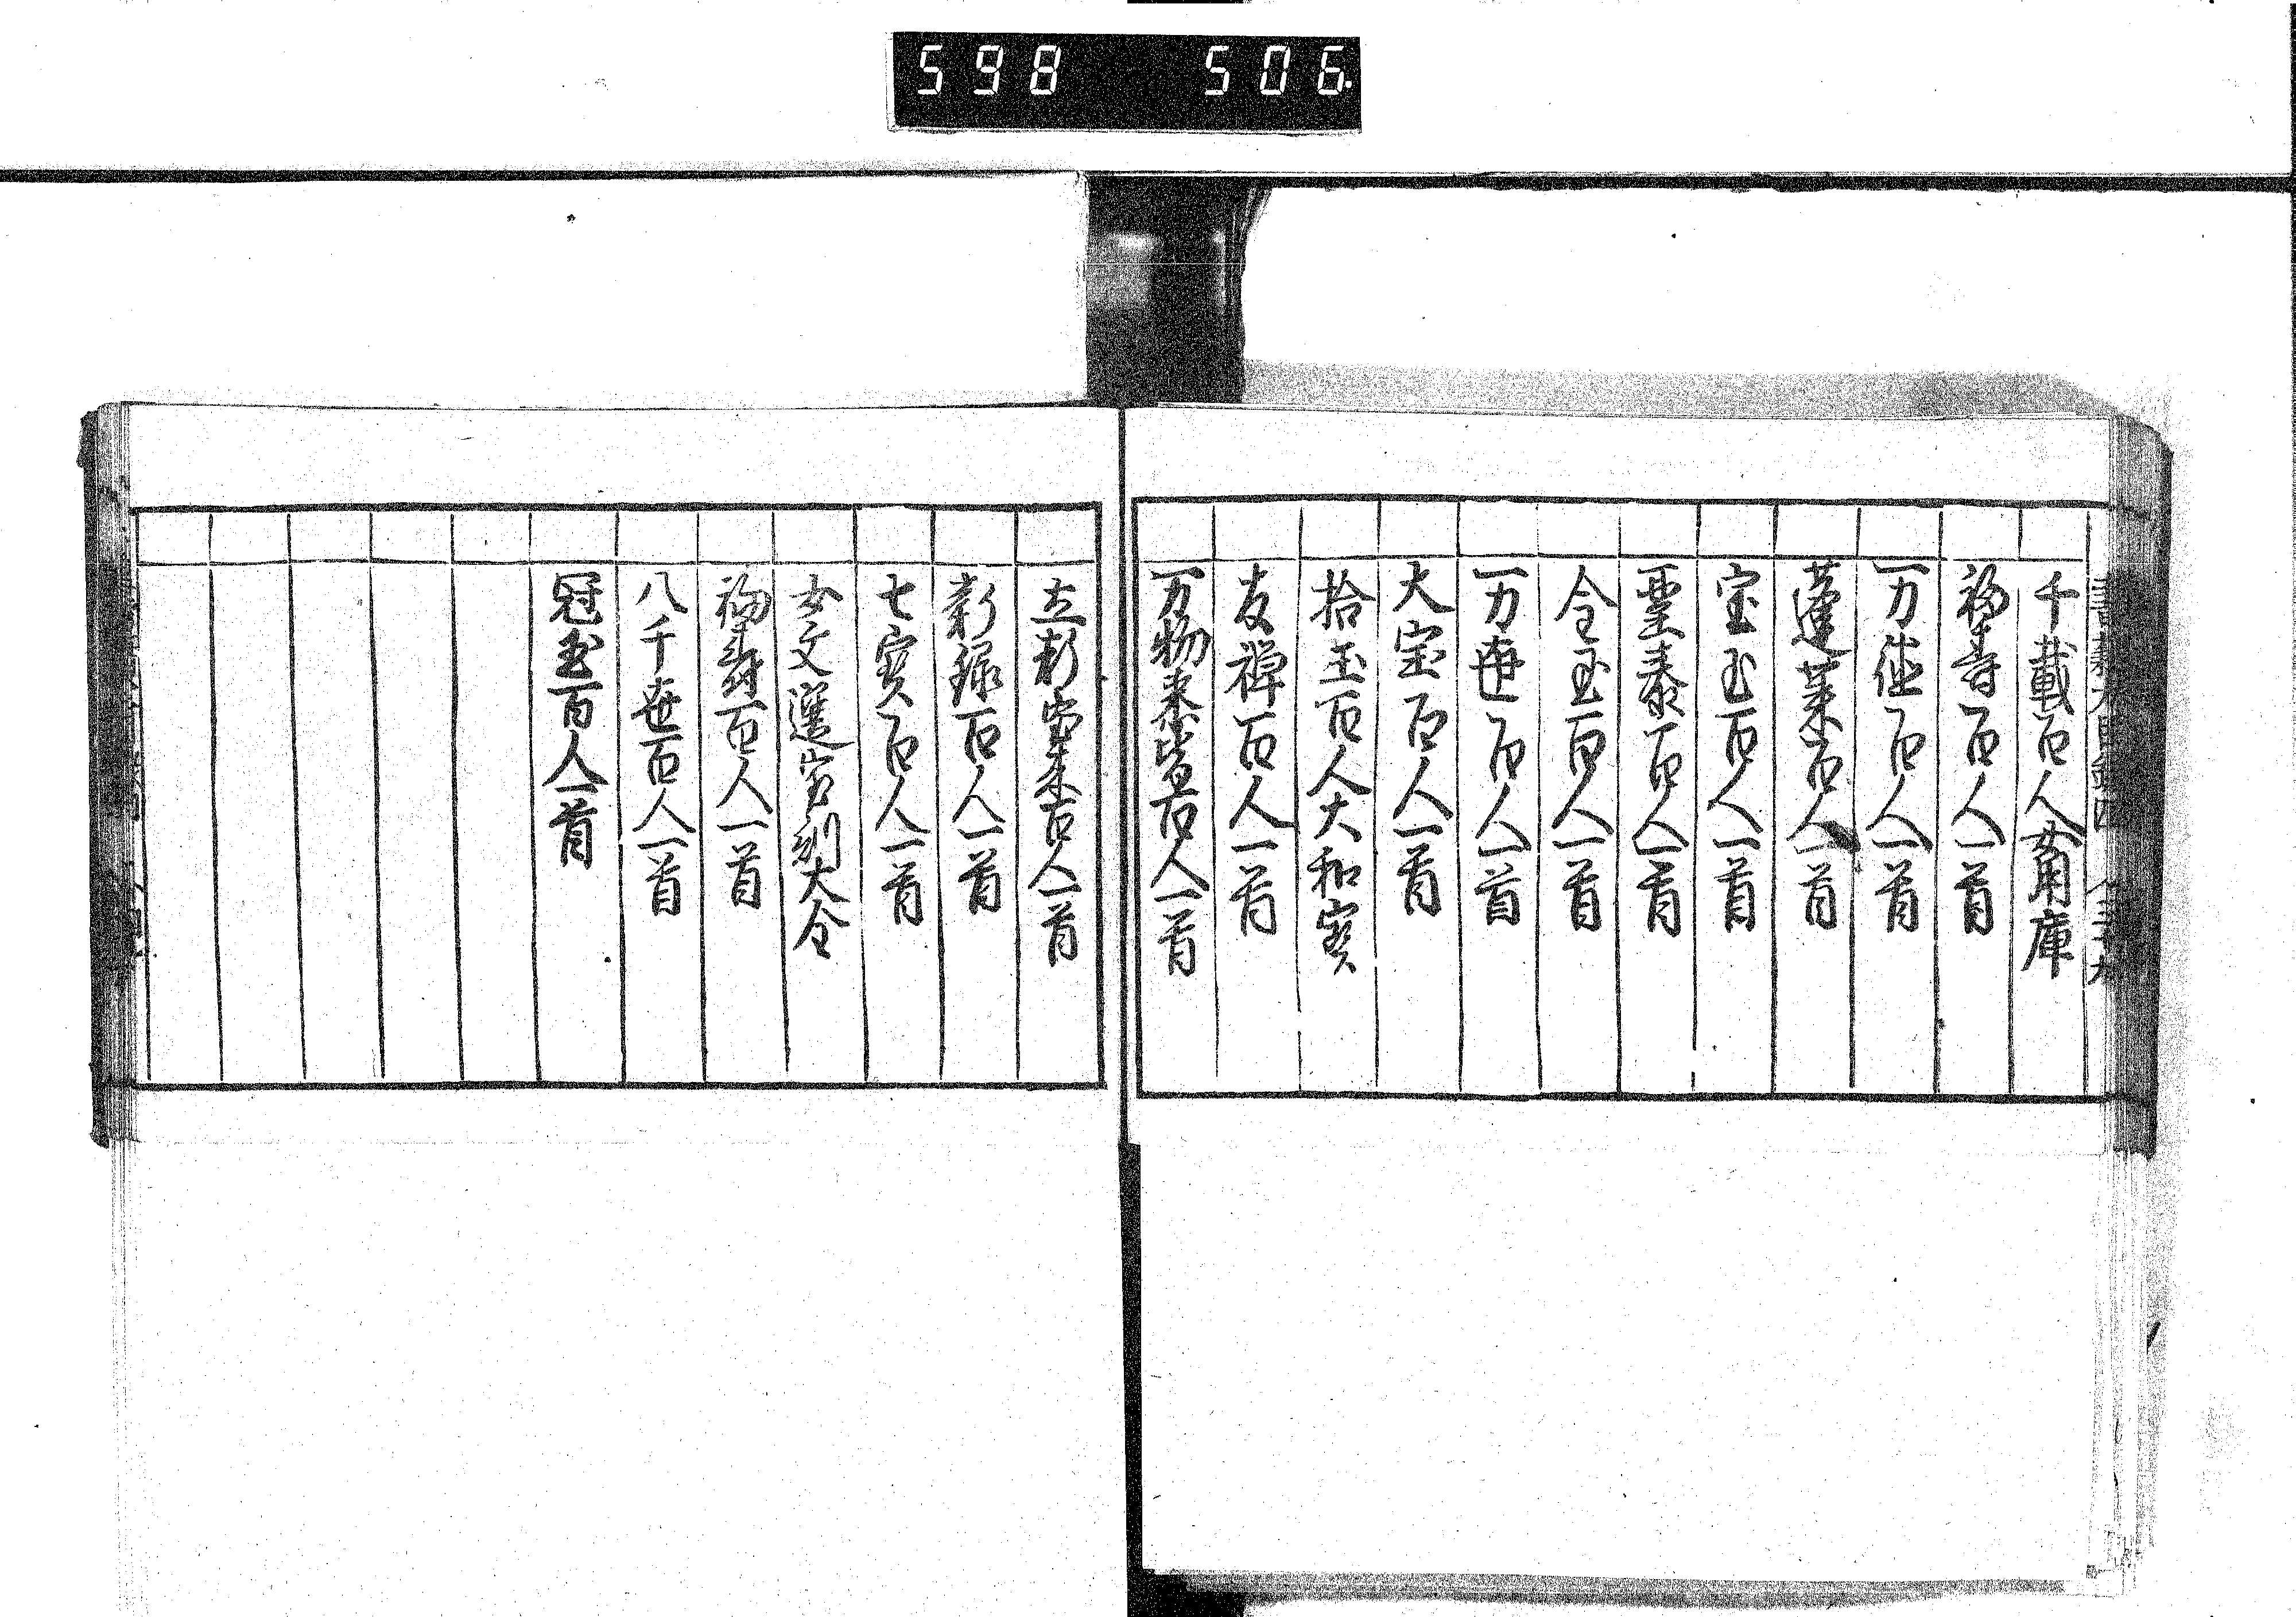 598 506
千載百人女用庫
福寿百人一首
万徳百人一首
蓬莱百人一首
宝玉百人一首
栗泰百人一首
全玉百人一首
万世百人一首
大宝百人一首
拾玉百人大和宝
友禅百人一首
万物来皆百人一首
立彩蓬莱百人一首
新録百人一首
七宝百人一首
女文選宝別大全
福寿百人一首
八千世百人一首
冠玉百人一首